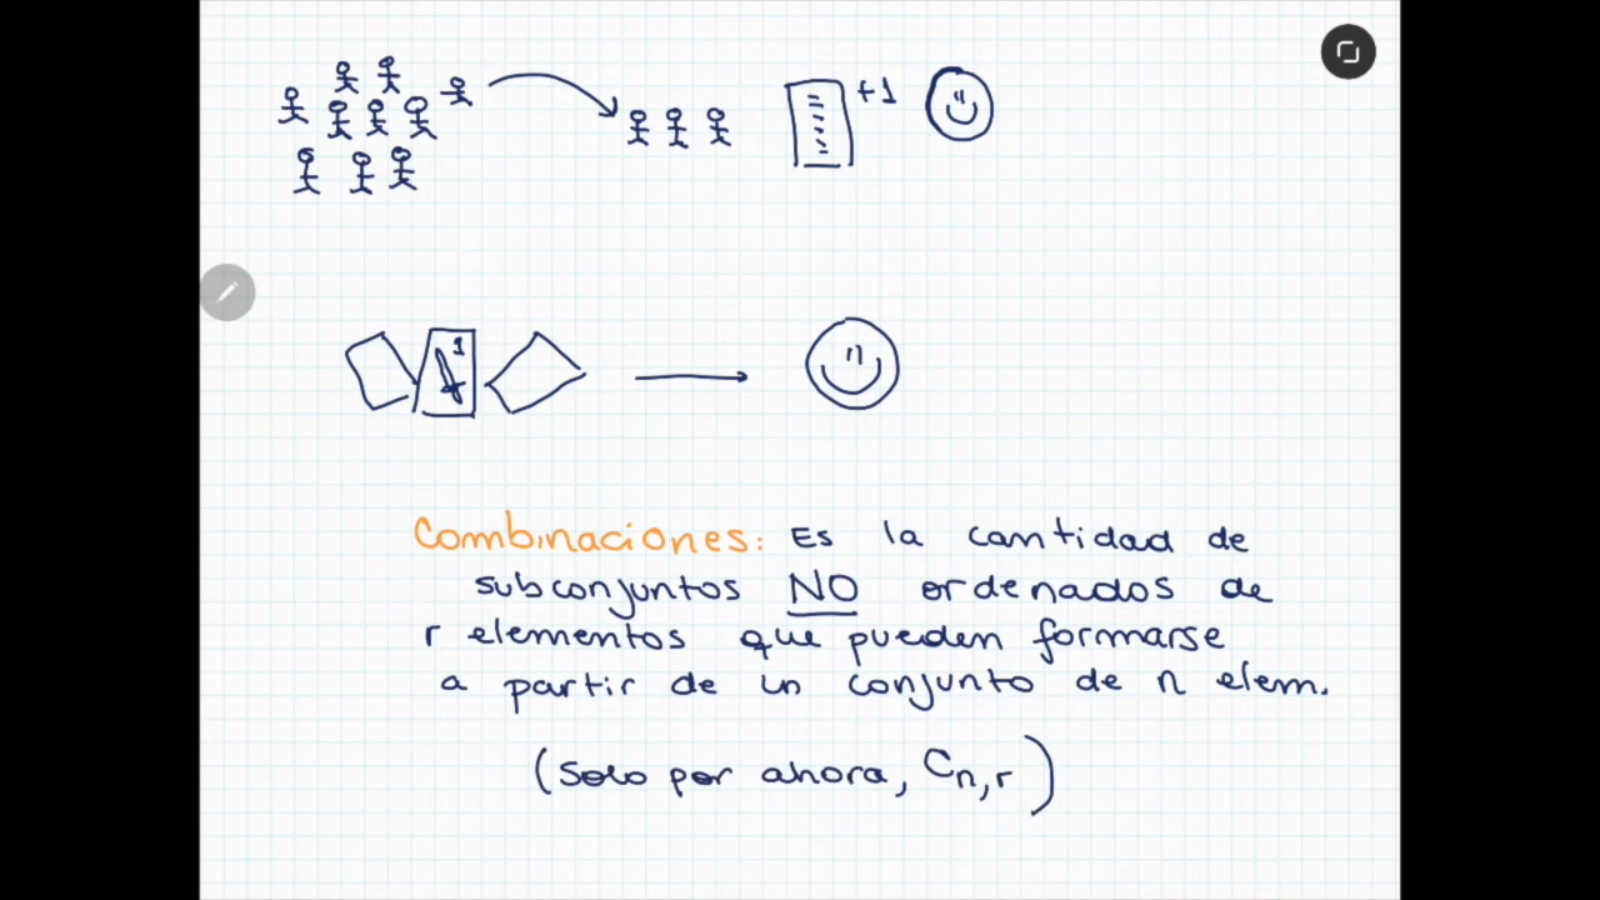 +1
1
Combinaciones: Es la cantidad de
subconjuntos NO ordenados de
r elementos que pueden formarse
a partir de un conjunto de n elem.
(solo por ahora, Cn,r)